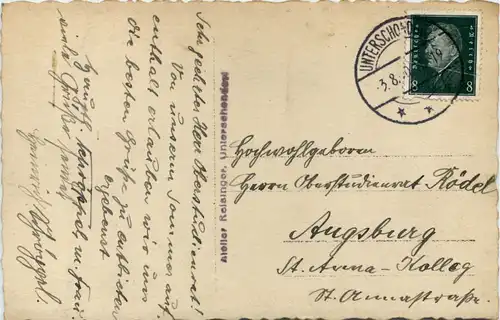 Sehr geehrter Herr Oberstudienrat!
Von unserm Sommerauf-
enthalt erlauben wir uns
die besten Grüße zu entbieten
Ergebenst
u. Frau.
viele Grüße
Atelier Reisinger, Unterschondorf
UNTERSCHO
3.8.
Deutsches Reich
8 8
Hochwohlgeboren
Herrn Oberstudienrat Rödel
Augsburg
St. Anna-Kolleg
St. Annastraße.